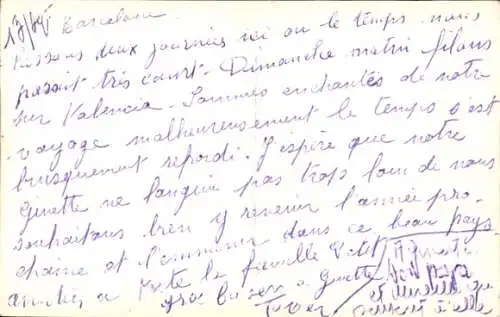 Barcelone
Passons deux journées ici où le temps nous
paraît très court. Dimanche matin filons
sur Valencia. Sommes enchantés de notre
voyage malheureusement le temps s'est
brusquement refroidi. J'espère que notre
Ginette ne languie pas trop loin de nous
souhaitons bien y revenir l'année pro-
chaine et l'emmener dans ce beau pays
amitiés a toute la famille
gros baisers a Ginette
et